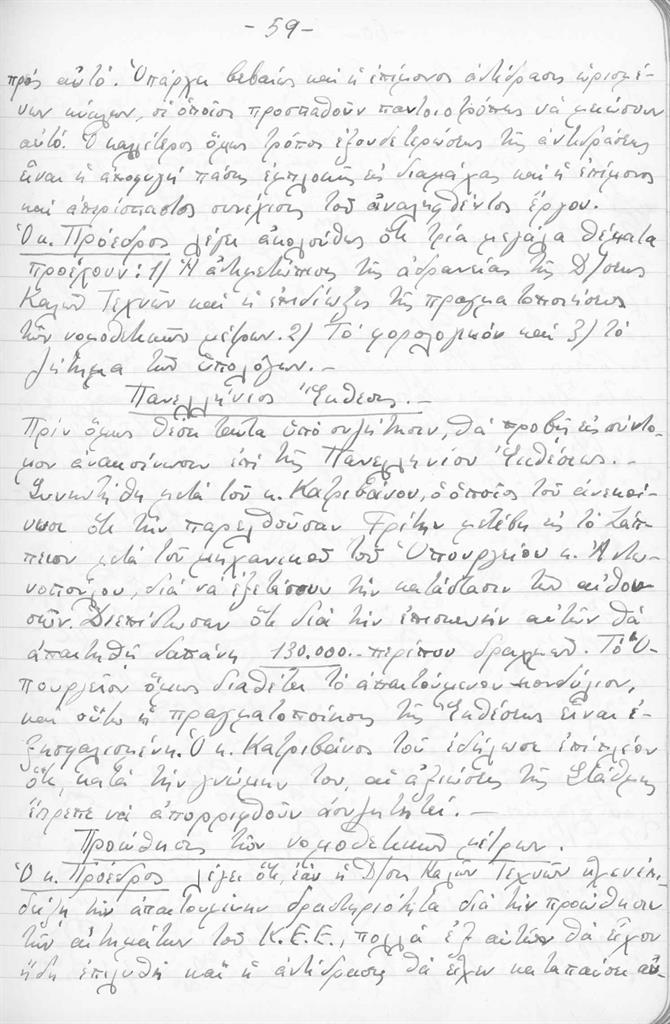 - 59 -
πρός αὐτό. Ὑπάρχει βεβαίως καί ἡ ἐπίμονος ἀντίδρασις ὡρισμέ-
νων κύκλων, οἱ ὁποῖοι προσπαθοῦν παντοιοτρόπως νά μειώσουν
αὐτό. Ὁ καλλίτερος ὅμως τρόπος ἐξουδετερώσεως τῆς ἀντιδράσεως
εἶναι ἡ ἀποφυγή πάσης ἐμπλοκῆς εἰς διαμάχας καί ἡ ἐπίμονος
καί ἀπερίσπαστος συνέχισις τοῦ ἀναληφθέντος ἔργου.
Ὁ κ. Πρόεδρος λέγει ἀκολούθως ὅτι τρία μεγάλα θέματα
προέχουν: 1) Ἡ ἀντιμετώπισις τῆς ἀδρανείας τῆς Δ/σεως
Καλῶν Τεχνῶν καί ἡ ἐπιδίωξις τῆς πραγματοποιήσεως
τῶν νομοθετικῶν μέτρων. 2) Τό φορολογικόν καί 3) τό
ζήτημα τῶν ὑπολόγων. -
Πανελλήνιος Ἔκθεσις. -
Πρίν ὅμως θέσει ταῦτα ὑπό συζήτησιν, θά προβῇ εἰς σύντο-
μον ἀνακοίνωσιν ἐπί τῆς Πανελληνίου Ἐκθέσεως. -
Συνηντήθη μετά τοῦ κ. Κατριβάνου, ὁ ὁποῖος τοῦ ἀνεκοί-
νωσε ὅτι τήν παρελθοῦσαν Τρίτην μετέβη εἰς τό Ζάπ-
πειον μετά τοῦ μηχανικοῦ τοῦ Ὑπουργείου κ. Ἀντω-
νοπούλου, διά νά ἐξετάσουν τήν κατάστασιν τῶν αἰθου-
σῶν. Διεπίστωσαν ὅτι διά τήν ἐπισκευήν αὐτῶν θά
ἀπαιτηθῇ δαπάνη 130.000.- περίπου δραχμῶν. Τό Ὑ-
πουργεῖον ὅμως διαθέτει τό ἀπαιτούμενον κονδύλιον,
καί οὕτω ἡ πραγματοποίησις τῆς Ἐκθέσεως εἶναι ἐ-
ξησφαλισμένη. Ὁ κ. Κατριβάνος τοῦ ἐδήλωσε ἐπιπλέον
ὅτι, κατά τήν γνώμην του, αἱ ἀξιώσεις τῆς Στάθμης
ἔπρεπε νά ἀπορριφθοῦν ἀσυζητητεί. -
Προώθησις τῶν νομοθετικῶν μέτρων.
Ὁ κ. Πρόεδρος λέγει ὅτι, ἐάν ἡ Δ/σις Καλῶν Τεχνῶν
δείξῃ τήν ἀπαιτουμένην δραστηριότητα διά τήν προώθησιν
τῶν αἰτημάτων τοῦ Κ.Ε.Ε., πολλά ἐξ αὐτῶν θά εἶχον
ἤδη ἐπιλυθῆ καί ἡ ἀντίδρασις θά εἶχεν καταπαύσει αὐ-